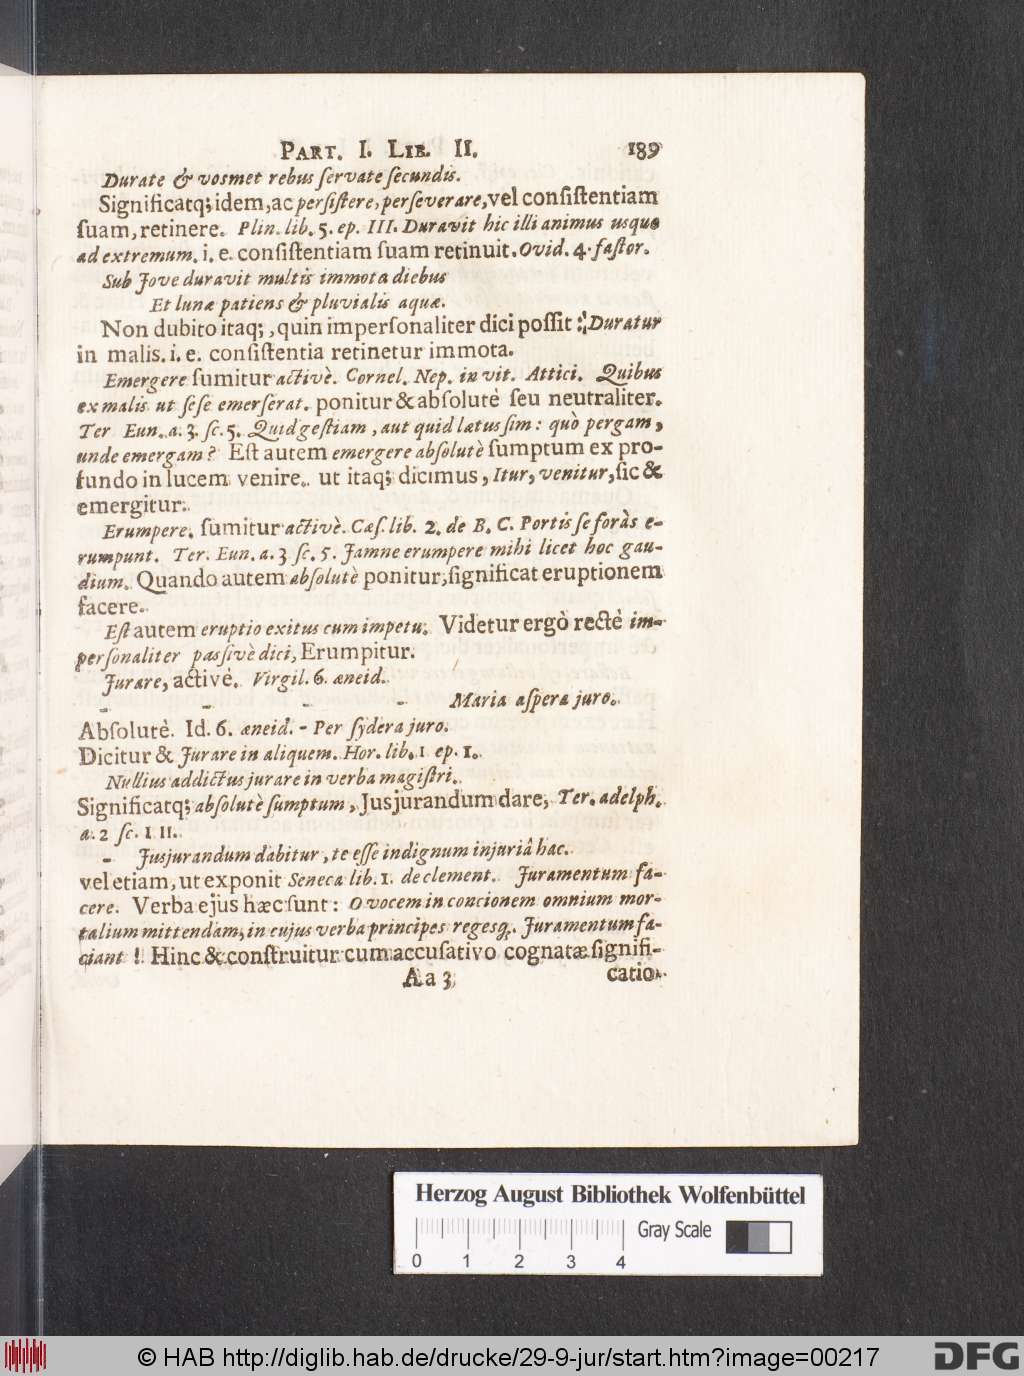 PART. I. LIB. II. 189
Durate & vosmet rebus servate secundis.
Significatq; idem, ac persistere, perseverare, vel consistentiam
suam, retinere. Plin. lib. 5. ep. III. Duravit hic illi animus usque
ad extremum. i. e. consistentiam suam retinuit. Ovid. 4. fastor.
Sub Jove duravit multis immota diebus
Et lunæ patiens & pluvialis aquæ.
Non dubito itaq;, quin impersonaliter dici possit: Duratur
in malis. i. e. consistentia retinetur immota.
Emergere sumitur activè. Cornel. Nep. in vit. Attici. Quibus
ex malis ut sese emerserat. ponitur & absolutè seu neutraliter.
Ter Eun. a. 3. sc. 5. Quid gestiam, aut quid lætus sim: quò pergam,
unde emergam? Est autem emergere absolutè sumptum ex pro-
fundo in lucem venire. ut itaq; dicimus, Itur, venitur, sic &
emergitur.
Erumpere. sumitur activè. Cæs. lib. 2. de B. C. Portis se foràs e-
rumpunt. Ter. Eun. a. 3 sc. 5. Jamne erumpere mihi licet hoc gau-
dium. Quando autem absolutè ponitur, significat eruptionem
facere.
Est autem eruptio exitus cum impetu. Videtur ergò rectè im-
personaliter passivè dici, Erumpitur.
Jurare, activé. Virgil. 6. æneid.
- - - - Maria aspera juro.
Absolutè. Id. 6. æneid. - Per sydera juro.
Dicitur & Jurare in aliquem. Hor. lib. 1 ep. 1.
Nullius addictus jurare in verba magistri.
Significatq; absolutè sumptum, Jusjurandum dare, Ter. adelph.
a. 2 sc. I II.
- Jusjurandum dabitur, te esse indignum injuriâ hac.
vel etiam, ut exponit Seneca lib. 1. de clement. Juramentum fa-
cere. Verba ejus hæc sunt: O vocem in concionem omnium mor-
talium mittendam, in cujus verba principes regesq;. Juramentum fa-
ciant! Hinc & construitur cum accusativo cognatæ signifi-
A a 3 catio-
Herzog August Bibliothek Wolfenbüttel
Gray Scale
0 1 2 3 4
© HAB http://diglib.hab.de/drucke/29-9-jur/start.htm?image=00217
DFG